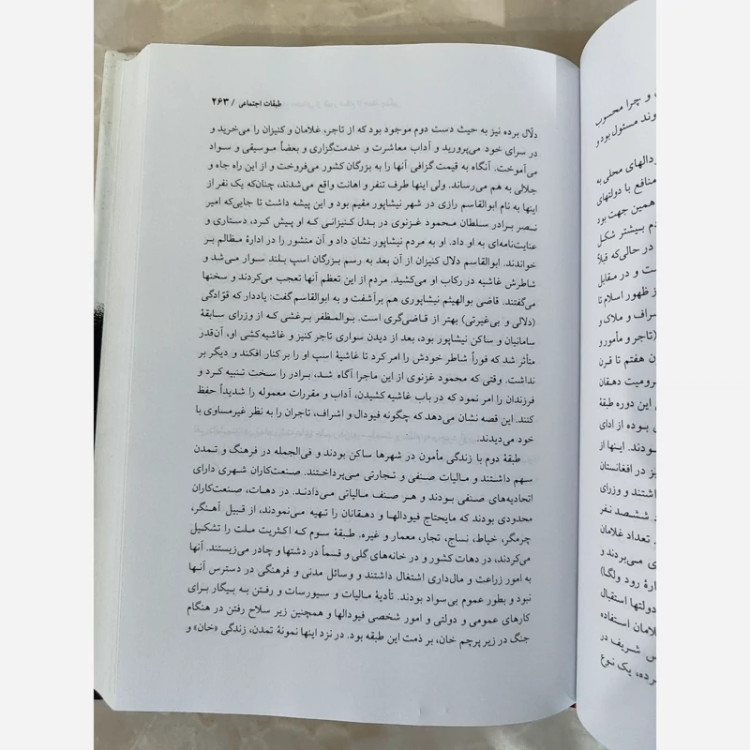 طبقات اجتماعی / ۲۶۳
دلّال برده نیز به حیث دست دوم موجود بود که از تاجر، غلامان و کنیزان را می‌خرید و
در سرای خود می‌پرورید و آداب معاشرت و خدمت‌گزاری و بعضاً موسیقی و سواد
می‌آموخت. آنگاه به قیمت گزافی آنها را به بزرگان کشور می‌فروخت و از این راه جاه و
جلالی به هم می‌رساند. ولی اینها طرف تنفر و اهانت واقع می‌شدند، چنان‌که یک نفر از
اینها به نام ابوالقاسم رازی در شهر نیشاپور مقیم بود و این پیشه داشت تا جایی‌که امیر
نصر برادر سلطان محمود غزنوی در بدل کنیزانی که او پیش کرد، دستاری و
عنایت‌نامه‌ای به او داد. او به مردم نیشاپور نشان داد و آن منشور را در ادارهٔ مظالم بر
خواندند. ابوالقاسم دلال کنیزان از آن بعد به رسم بزرگان اسپ بلند سوار می‌شد و
شاطرش غاشیه در رکاب او می‌کشید. مردم از این تعظم آنها تعجب می‌کردند و سخنها
می‌گفتند. قاضی بوالهیثم نیشاپوری هم برآشفت و به ابوالقاسم گفت: یاددار که قوّادگی
(دلالی و بی‌غیرتی) بهتر از قاضی‌گری است. بوالمظفر برغشی که از وزرای سابقهٔ
سامانیان و ساکن نیشاپور بود، بعد از دیدن سواری تاجر کنیز و غاشیه‌کشی او، آن‌قدر
متأثر شد که فوراً شاطر خودش را امر کرد تا غاشیهٔ اسپ او را بر کنار افکند و دیگر بر
نداشت. وقتی که محمود غزنوی از این ماجرا آگاه شد، برادر را سخت تنبیه کرد و
فرزندان را امر نمود که در باب غاشیه کشیدن، آداب و مقررات معموله را شدیداً حفظ
کنند. این قصه نشان می‌دهد که چگونه فیودال و اشراف، تاجران را به نظر غیرمساوی با
خود می‌دیدند.
طبقهٔ دوم با زندگی مأمون در شهرها ساکن بودند و فی‌الجمله در فرهنگ و تمدن
سهم داشتند و مالیات صنفی و تجارتی می‌پرداختند. صنعت‌کاران شهری دارای
اتحادیه‌های صنفی بودند و هر صنف مالیاتی می‌دادند. در دهات، صنعت‌کاران
محدودی بودند که مایحتاج فیودالها و دهقانان را تهیه می‌نمودند، از قبیل آهنگر،
چرمگر، خیاط، نساج، تجار، معمار و غیره. طبقهٔ سوم که اکثریت ملت را تشکیل
می‌کردند، در دهات کشور و در خانه‌های گلی و قسماً در دشتها و چادر می‌زیستند. آنها
به امور زراعت و مال‌داری اشتغال داشتند و وسائل مدنی و فرهنگی در دسترس آنها
نبود و بطور عموم بی‌سواد بودند. تأدیهٔ مالیات و سیورسات و رفتن به بیگار برای
کارهای عمومی و دولتی و امور شخصی فیودالها و همچنین زیر سلاح رفتن در هنگام
جنگ در زیر پرچم خان، بر ذمت این طبقه بود. در نزد اینها نمونهٔ تمدن، زندگی «خان» و
و چرا محسوب
وند مسئول بود و
ردالهای محلی به
منافع با دولتهای
همین جهت بود
دم بیشتر شکل
در حالی‌که قبلاً
ست و در مقابل
ز ظهور اسلام تا
شراف و ملاک و
(تاجر و مأمور و
ن هفتم تا قرن
رومیت دهقان
این دوره طبقهٔ
بوده از ادای
ودند. اینها از
یز در افغانستان
اشتند و وزرای
ششصد نفر
تعداد غلامان
می‌بردند و
ارهٔ رود ولگا)
دولتها استقبال
لامان استفاده
س شریف در
رده، یک نوع